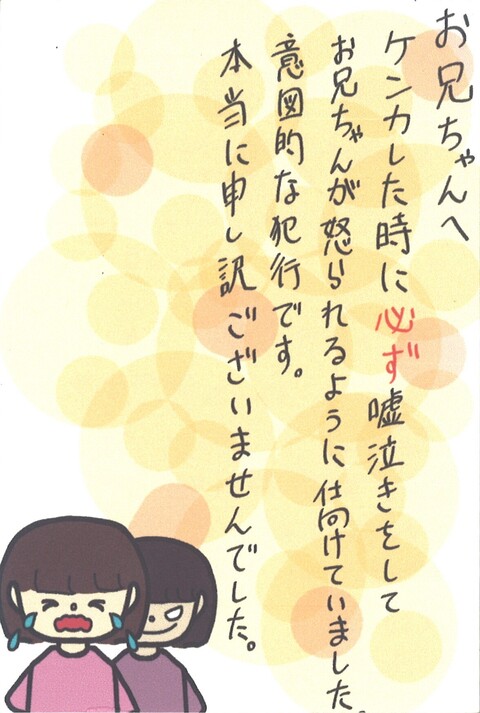 お兄ちゃんへ
ケンカした時に必ず嘘泣きをして
お兄ちゃんが怒られるように仕向けていました。
意図的な犯行です。
本当に申し訳ございませんでした。